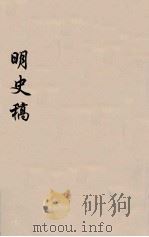 明史稿
研狗
mtoou.info